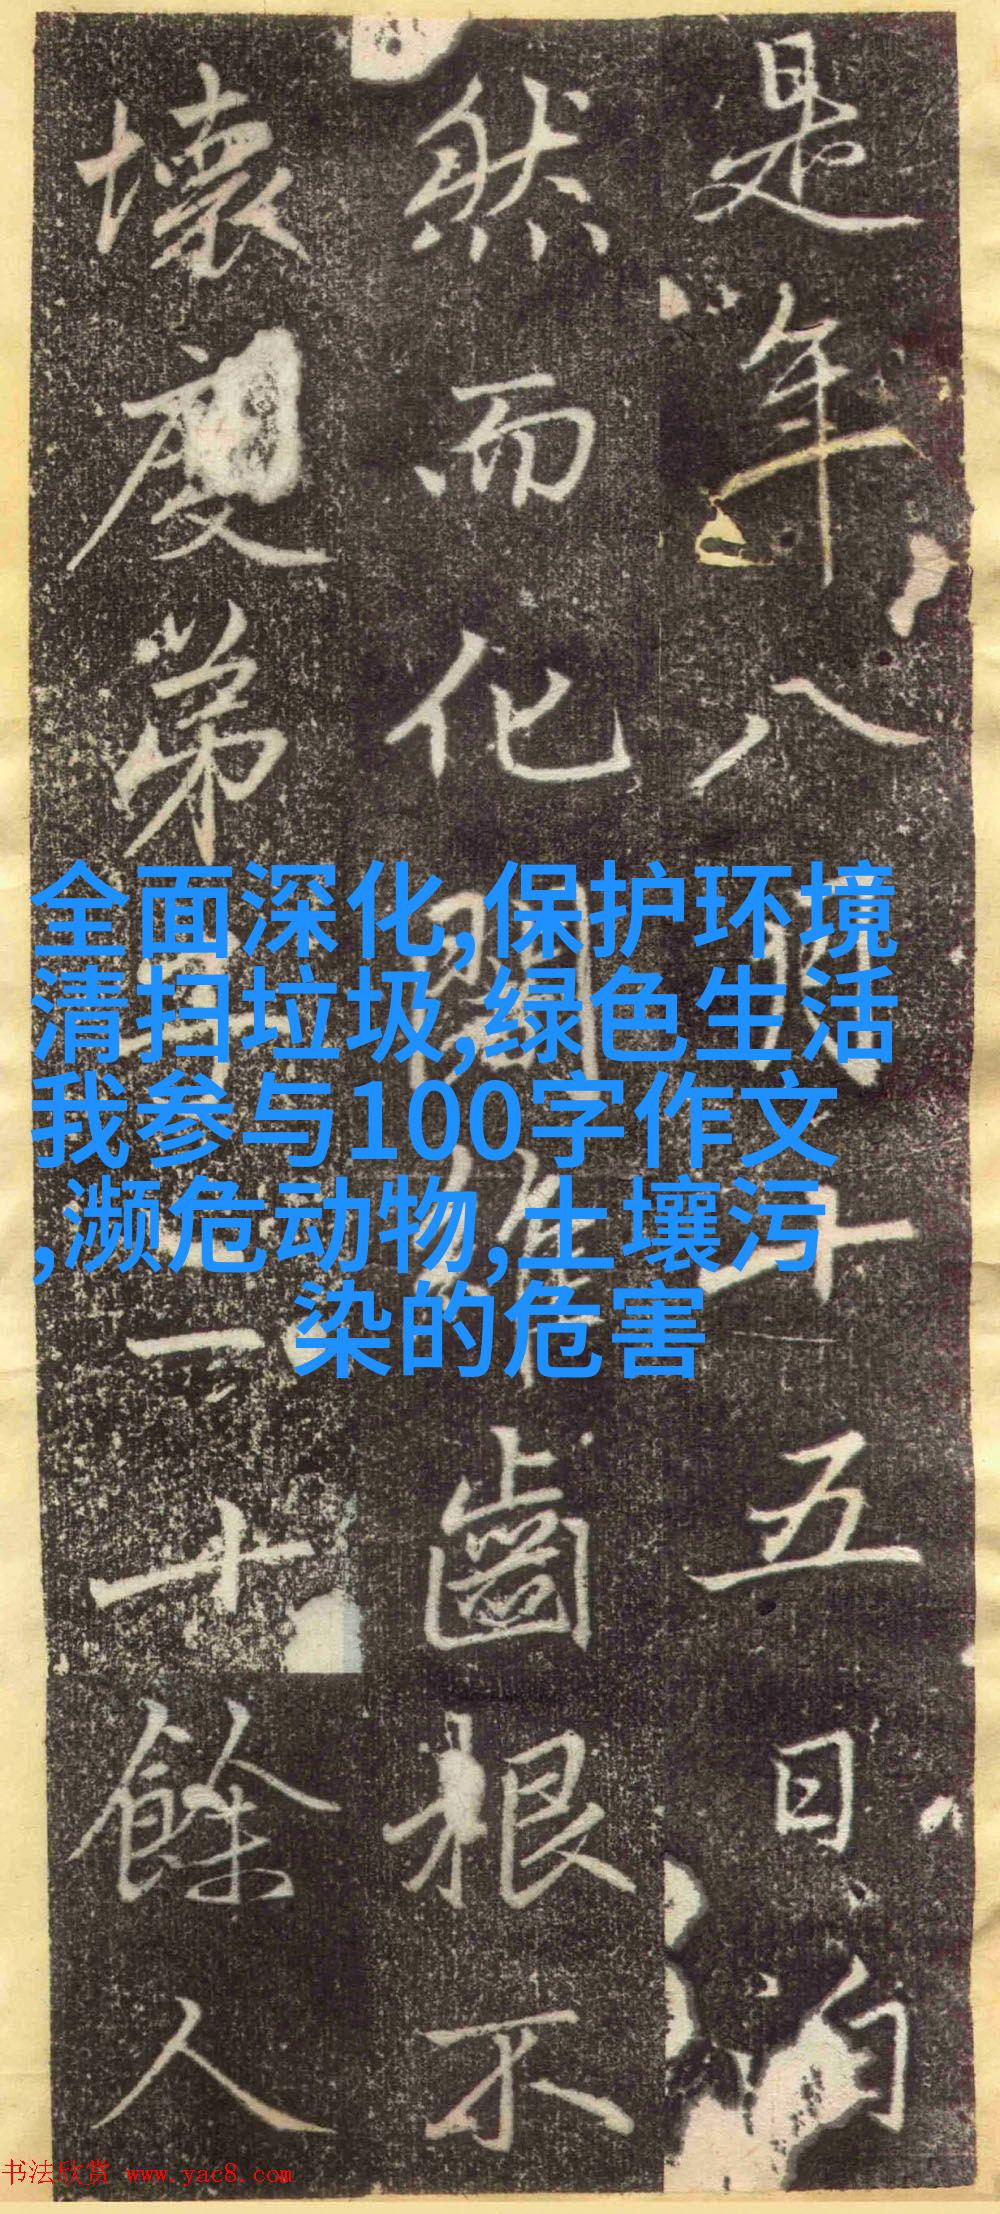 是年八月十五日白
然而化闍維齒根不
壞慶弟子二十餘人
全面深化,保护环境
清扫垃圾,绿色生活
我参与100字作文
,濒危动物,土壤污
染的危害
书法欣赏 www.yac8.com